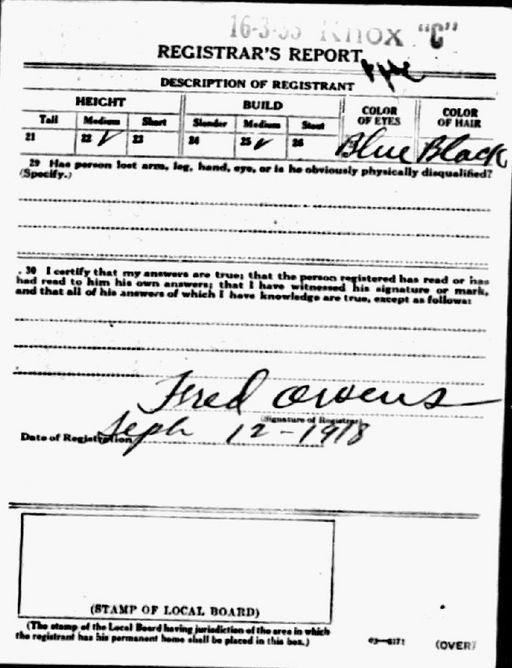 16-3-33 Knox "C"
REGISTRAR'S REPORT
DESCRIPTION OF REGISTRANT
HEIGHT BUILD COLOR OF EYES COLOR OF HAIR
Tall Medium Short Slender Medium Stout
21 22 ✓ 23 24 25 ✓ 26 Blue Black
29 Has person lost arm, leg, hand, eye, or is he obviously physically disqualified?
(Specify.)
30 I certify that my answers are true; that the person registered has read or has
had read to him his own answers; that I have witnessed his signature or mark,
and that all of his answers of which I have knowledge are true, except as follows:
Fred Owens
(Signature of Registrar)
Date of Registration Sept 12-1918
(STAMP OF LOCAL BOARD)
(The stamp of the Local Board having jurisdiction of the area in which
the registrant has his permanent home shall be placed in this box.)
03-6171 (OVER)